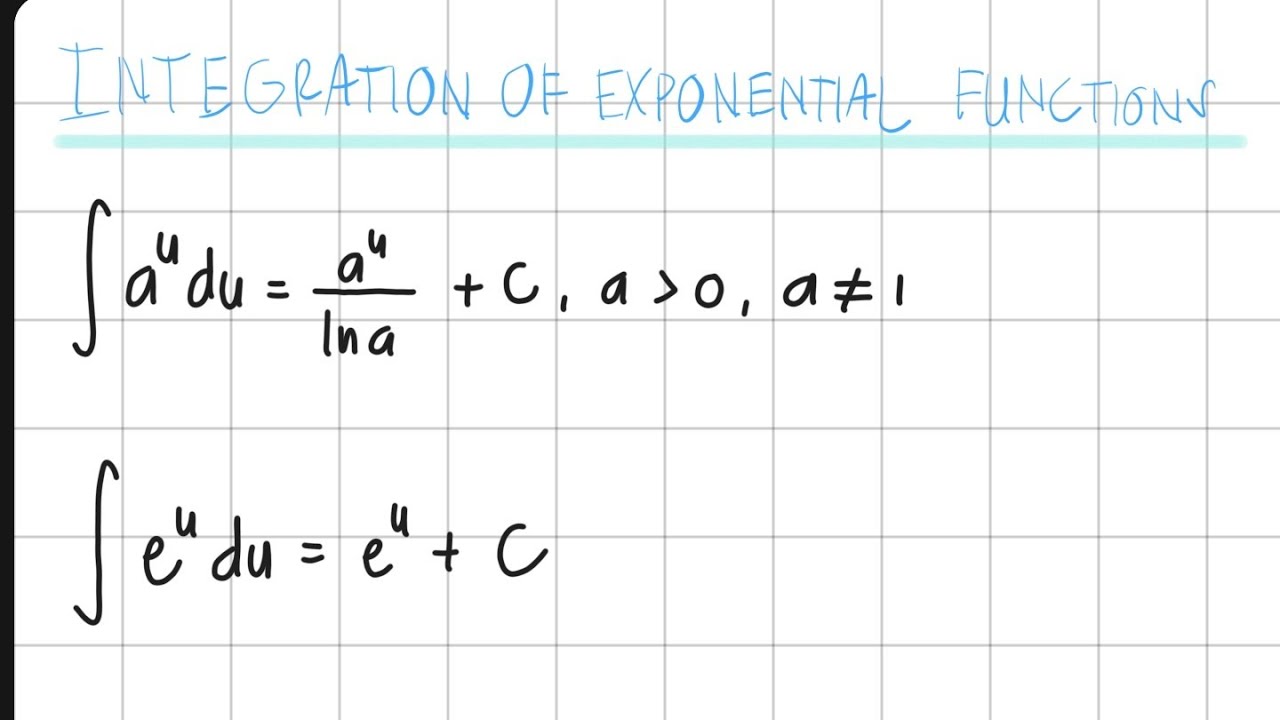 INTEGRATION OF EXPONENTIAL FUNCTIONS
∫ a^u du = a^u / ln a + C, a > 0, a ≠ 1
∫ e^u du = e^u + C